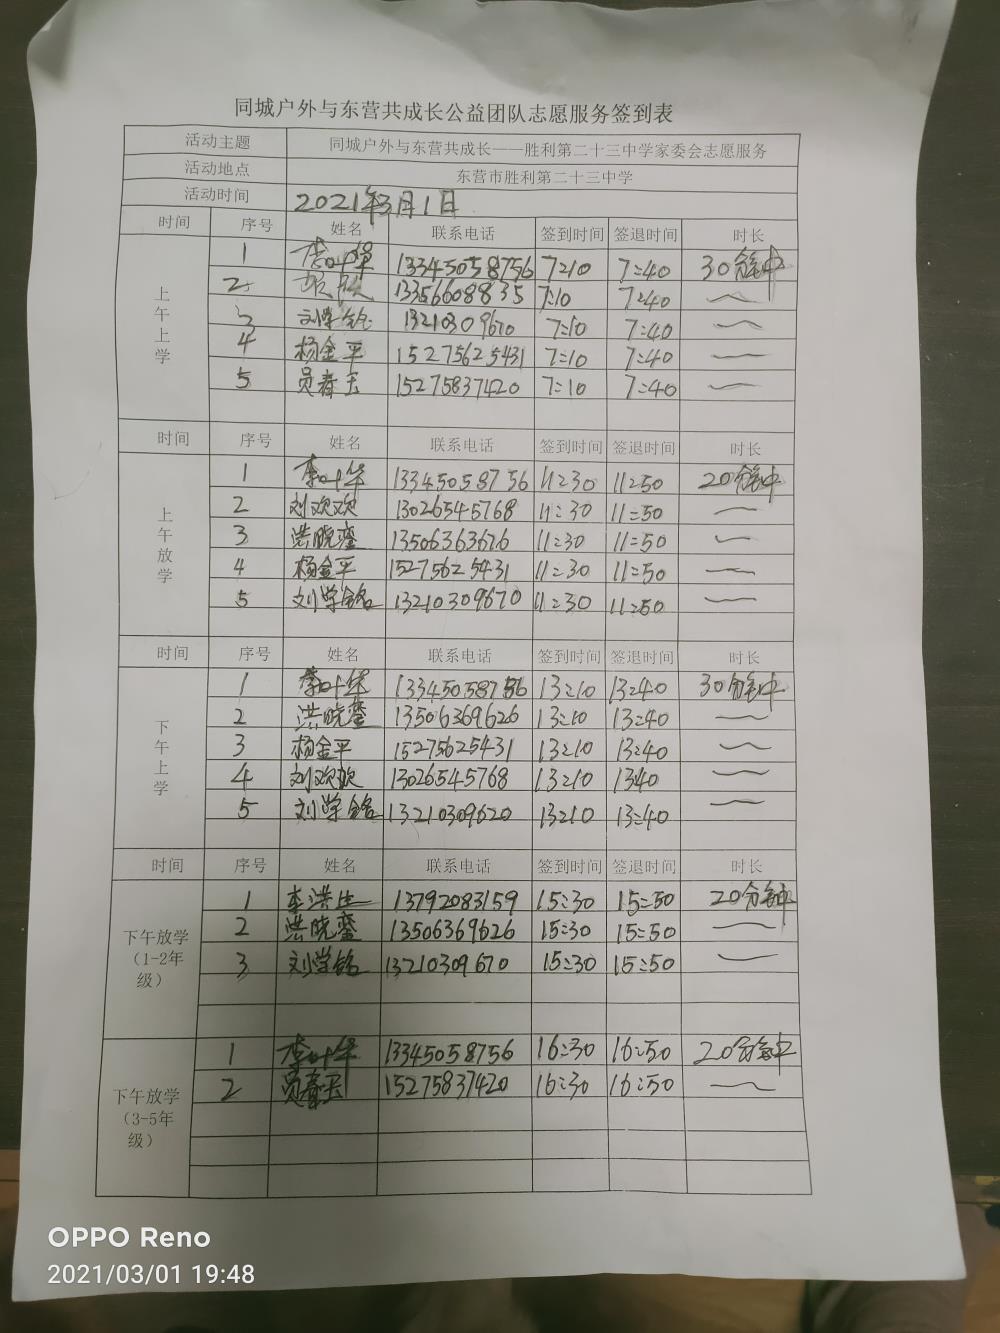 同城户外与东营共成长公益团队志愿服务签到表
活动主题 同城户外与东营共成长——胜利第二十三中学家委会志愿服务
活动地点 东营市胜利第二十三中学
活动时间 2021年3月1日
时间 序号 姓名 联系电话 签到时间 签退时间 时长
上午上学
1 李叶华 13345058756 7:10 7:40 30分钟
2 13356608835 7:10 7:40
3 刘学铭 13210309670 7:10 7:40
4 杨金平 15275625431 7:10 7:40
5 员春玉 15275837420 7:10 7:40
时间 序号 姓名 联系电话 签到时间 签退时间 时长
上午放学
1 李叶华 13345058756 11:30 11:50 20分钟
2 刘欢欢 13026545768 11:30 11:50
3 洪晓銮 11:30 11:50
4 杨金平 15275625431 11:30 11:50
5 刘学铭 13210309670 11:30 11:50
时间 序号 姓名 联系电话 签到时间 签退时间 时长
下午上学
1 李叶华 13345058756 13:10 13:40 30分钟
2 洪晓銮 13506369626 13:10 13:40
3 杨金平 15275625431 13:10 13:40
4 刘欢欢 13026545768 13:10 1340
5 刘学铭 13:10 13:40
时间 序号 姓名 联系电话 签到时间 签退时间 时长
下午放学
(1-2年
级)
1 李洪生 13792083159 15:30 15:50 20分钟
2 洪晓銮 13506369626 15:30 15:50
3 刘学铭 13210309670 15:30 15:50
下午放学
(3-5年
级)
1 李叶华 13345058756 16:30 16:50 20分钟
2 员春玉 15275837420 16:30 16:50
OPPO Reno
2021/03/01 19:48